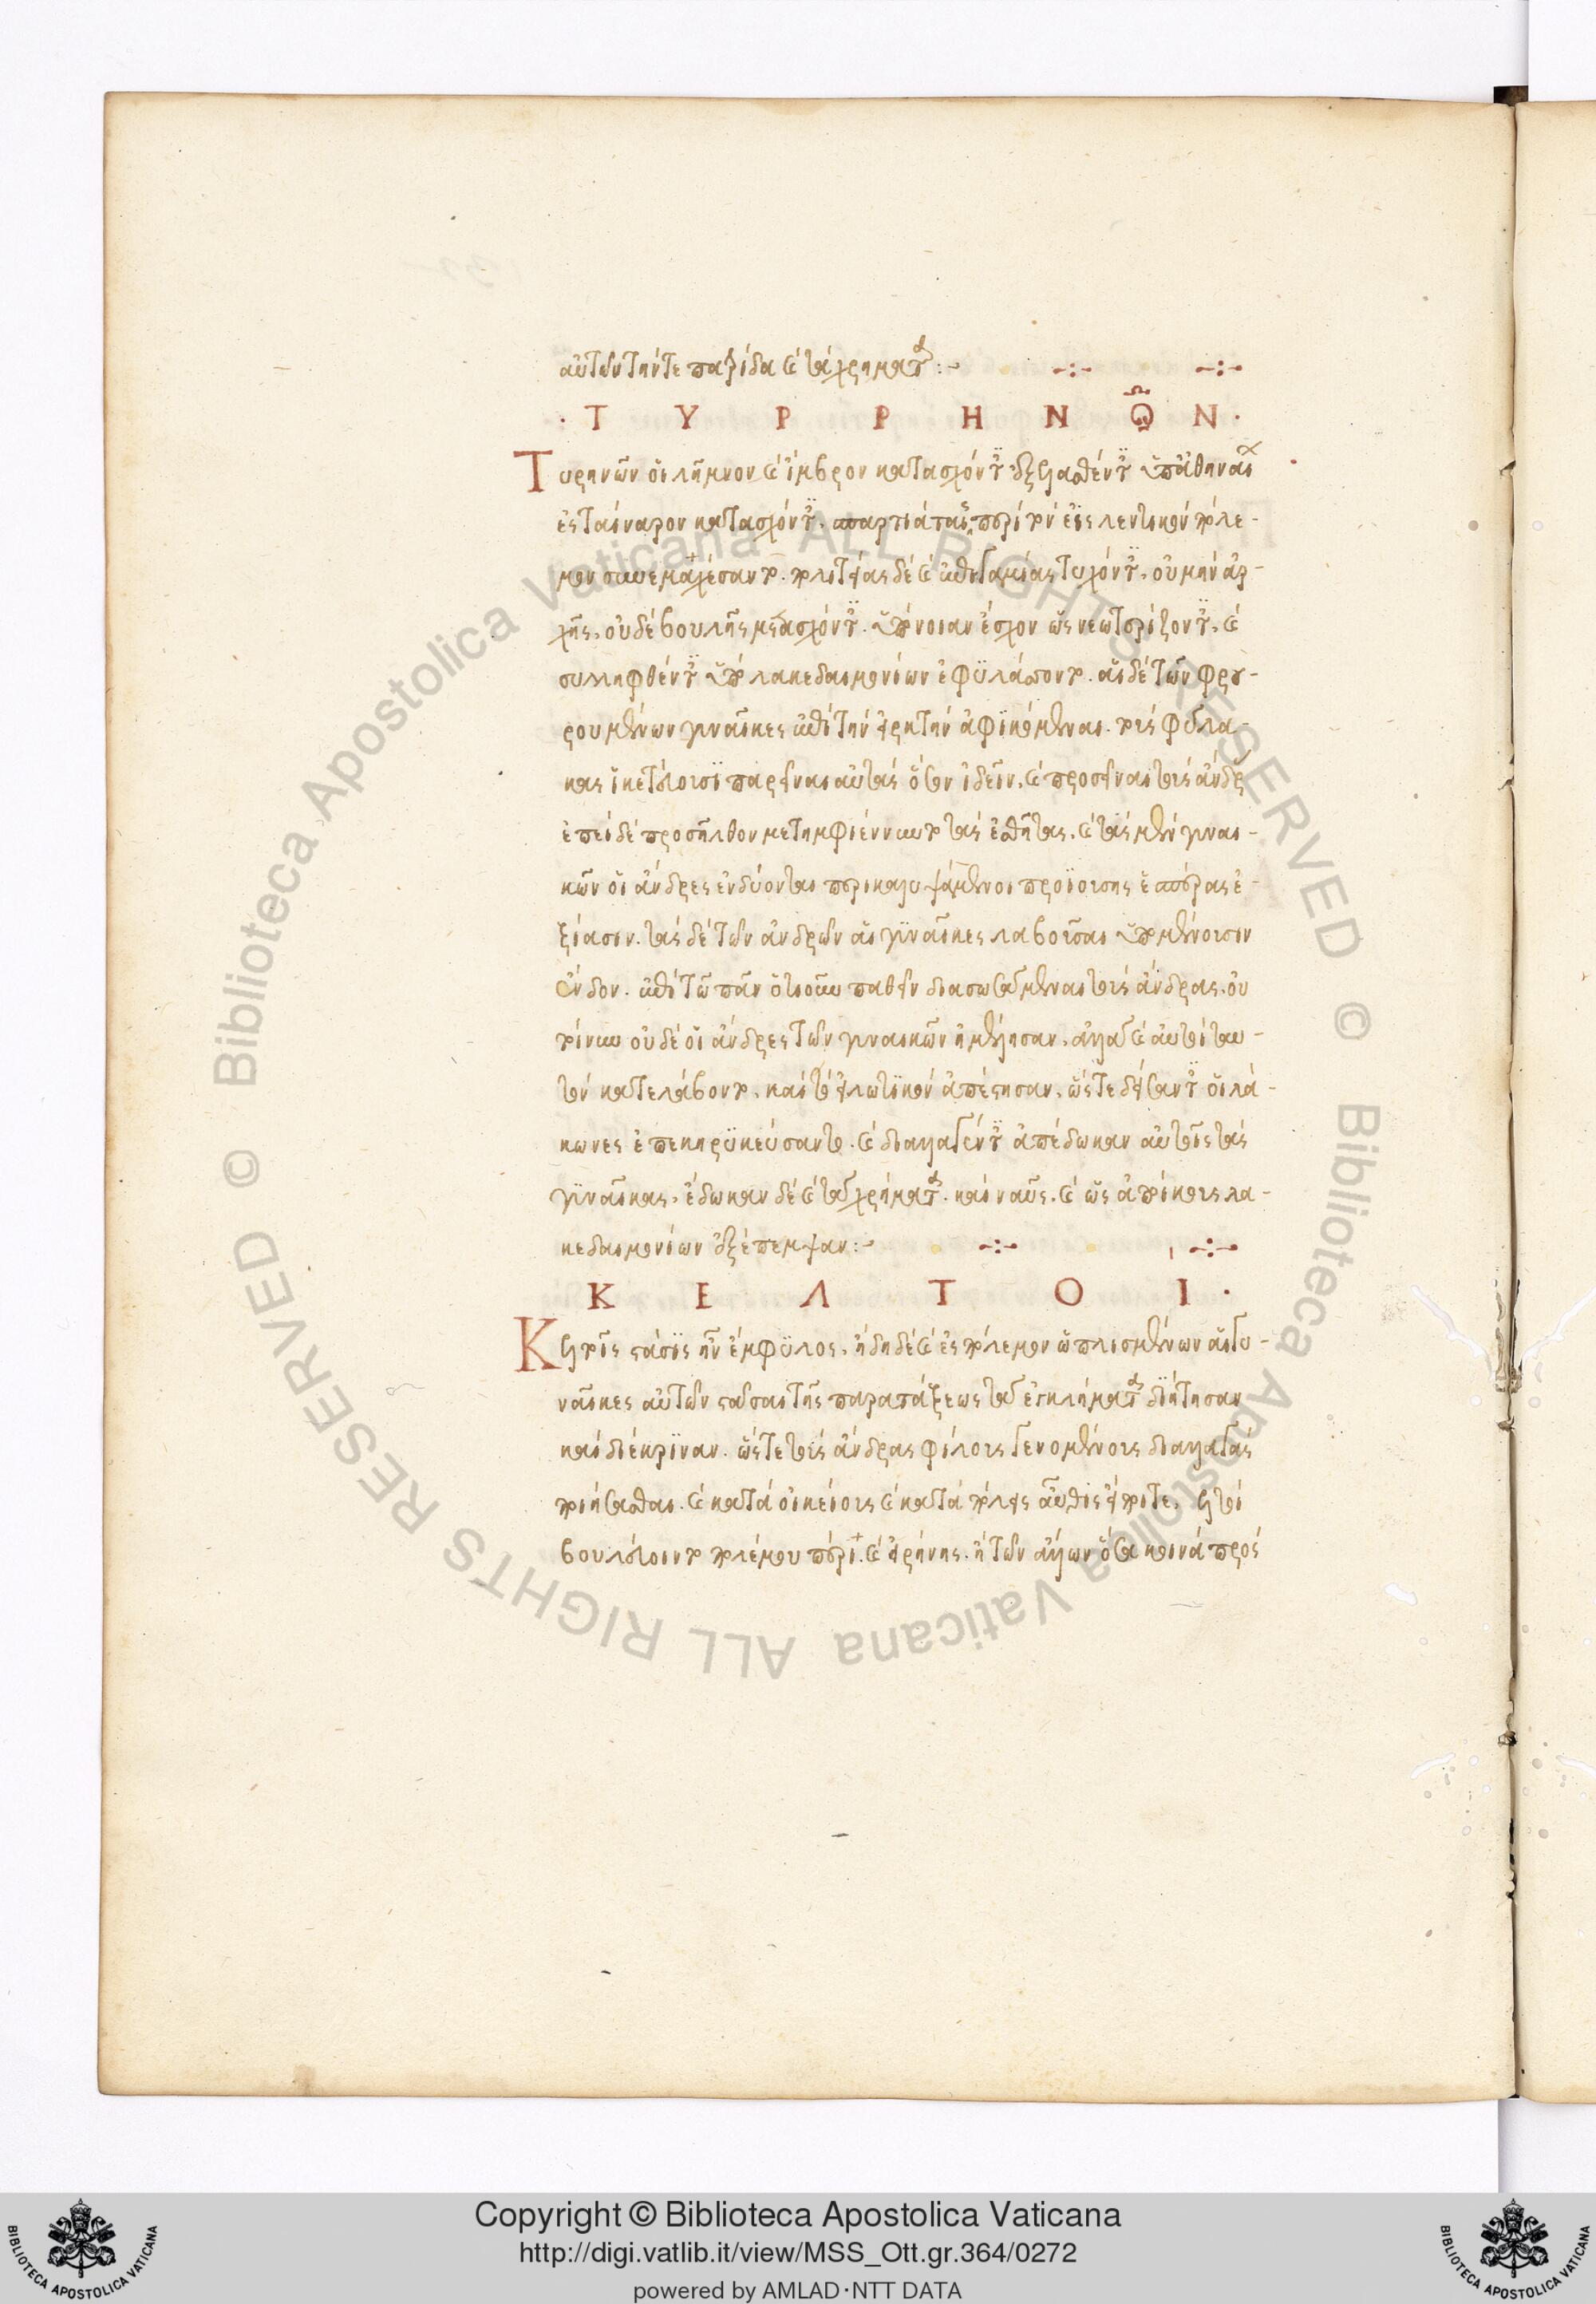 αὐτῶν τήν τε πατρίδα καὶ τὰ χρήματα :~ -:- -:-
· Τ Υ Ρ Ρ Η Ν Ω͂ Ν ·
Τυρηνῶν οἱ λῆμνον καὶ ἴμβρον κατασχόντες ἐξελαθέντες ὑπ' ἀθηναίων
ἐς ταίναρον κατασχόντες. σπαρτιάταις περὶ τὸν εἱλωτικὸν πόλε-
μον συνεμάχεσαντο. πολιτείας δὲ καὶ ἐπιγαμίας τυχόντες, οὐ μὴν ἀρ-
χῆς, οὐδὲ βουλῆς μετασχόντες. ὑπόνοιαν ἔσχον ὡς νεωτερίζοντες, καὶ
συλληφθέντες ὑπὸ λακεδαιμονίων ἐφυλάττοντο. αἱ δὲ τῶν φρου-
ρουμένων γυναῖκες ἐπὶ τὴν εἱρκτὴν ἀφικόμεναι. τοὺς φύλα-
κας ἱκετεύουσι παρεῖναι αὐτὰς ὅσον ἰδεῖν, καὶ προσειπεῖν τοὺς ἄνδρας
ἐπεὶ δὲ προσῆλθον μετημφιέννυντο τὰς ἐσθῆτας. καὶ τὰς μὲν γυναι-
κῶν οἱ ἄνδρες ἐνδύονται περικαλυψάμενοι προϊούσης ἑσπέρας ἐ-
ξίασιν. τὰς δὲ τῶν ἀνδρῶν αἱ γυναῖκες λαβοῦσαι ὑπομένουσιν
ἔνδον. ἐπὶ τῷ πᾶν ὁτιοῦν παθεῖν διασωσάμεναι τοὺς ἄνδρας. οὐ
τοίνυν οὐδὲ οἱ ἄνδρες τῶν γυναικῶν ἠμέλησαν, ἀλλὰ καὶ αὐτοὶ ταυ-
τὸν κατελάβοντο, καὶ τὸ εἱλωτικὸν ἀπέστησαν, ὥστε δείσαντες οἱ λά-
κωνες ἐπεκηρυκεύσαντο. καὶ διαλλαγέντες ἀπέδωκαν αὐτοῖς τὰς
γυναῖκας, ἔδωκαν δὲ καὶ τὰ χρήματα. καὶ ναῦς. καὶ ὡς ἀποίκους λα-
κεδαιμονίων ἐξέπεμψαν :~ -:- -:-
Κ Ε Λ Τ Ο Ι ·
Κελτοῖς στάσις ἦν ἔμφυλος, ἤδη δὲ καὶ ἐς πόλεμον ὡπλισμένων αἱ γυ-
ναῖκες αὐτῶν στᾶσαι τῆς παρατάξεως τὰ ἐγκλήματα διῄτησαν
καὶ διέκριναν. ὥστε τοὺς ἄνδρας φίλους γενομένους διαλλαγὰς
ποιήσασθαι. καὶ κατὰ οἰκείους καὶ κατὰ πόλεις αὖθις εἴποτε, κελτοὶ
βουλεύοιντο πολέμου πέρι. καὶ εἰρήνης. ἢ τῶν ἄλλων ὅσα κοινὰ πρὸς